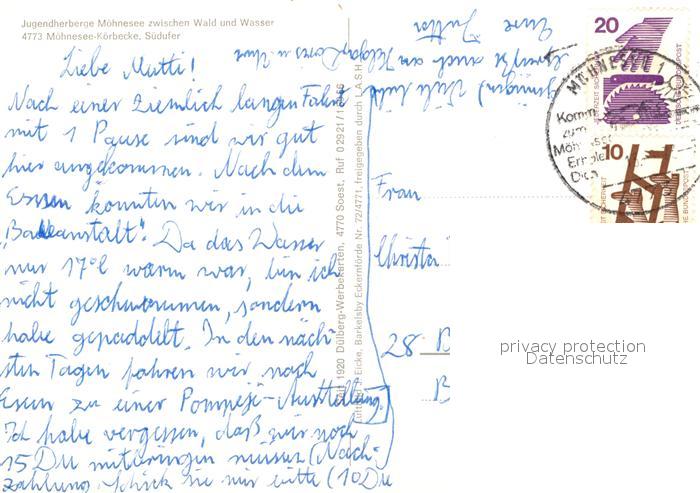 Jugendherberge Möhnesee zwischen Wald und Wasser
4773 Möhnesee-Körbecke, Südufer
Liebe Mutti!
Nach einer ziemlich langen Fahrt
mit 1 Pause sind wir gut
hier angekommen. Nach dem
Essen konnten wir in die
"Badeanstalt". Da das Wasser
nur 17° warm war, bin ich
nicht geschwommen, sondern
habe gepaddelt. In den näch-
sten Tagen fahren wir nach
Essen zu einer Pompeji-Austellung.
Ich habe vergessen, daß wir noch
15 DM mitbringen müssen (Nach-
zahlung. Schick sie mir bitte (10 DM
genügen) Viele liebe
Grüße auch an
Eure Jutta
Dülberg-Werbekarten, 4770 Soest, Ruf 02921/1
Eicke, Barkelsby Eckernförde Nr. 72/4771, freigegeben durch LASH
Frau
Christa
28 B
B
20
JEDERZEIT SICHERHEIT
DEUTSCHE BUNDESPOST
10
MÖHNESEE 1
Komm
zum
Möhnesee
Erhole
Dich
privacy protection
Datenschutz